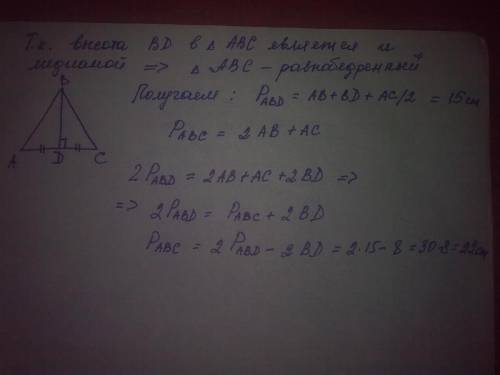 Т.к. высота BD в △ ABC является и
медианой => △ ABC – равнобедренный
Получаем : P_ABD = AB + BD + AC/2 = 15 см
P_ABC = 2 AB + AC
B
A D C
2P_ABD = 2AB + AC + 2 BD =>
=> 2P_ABD = P_ABC + 2 BD
P_ABC = 2 P_ABD – 2 BD = 2·15 – 8 = 30-8=22см